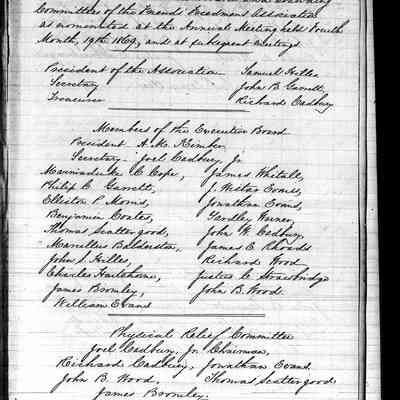 Committees of the Friends Freedmens Association
as nominated at the Annual Meeting held Fourth
Month, 19th 1869, and at subsequent meetings
President of the Association Samuel Hilles
Secretary John B. Garrett
Treasurer Richard Cadbury
Members of the Executive Board
President A. M. Kimber
Secretary Joel Cadbury, Jr
Marmaduke C. Cope, James Whitall,
Philip C. Garrett, J. Wistar Evans,
Elliston P. Morris, Jonathan Evans,
Benjamin Coates, Yardley Warner,
Thomas Scattergood, John W. Cadbury,
Marcellus Balderston, James E. Rhoads
John S. Hilles, Richard Wood
Charles Hartshorne, Justus C. Strawbridge
James Bromley, John B. Wood.
William Evans
Physical Relief Committee
Joel Cadbury, Jr Chairman,
Richard Cadbury, Jonathan Evans.
John B. Wood, Thomas Scattergood
James Bromley.